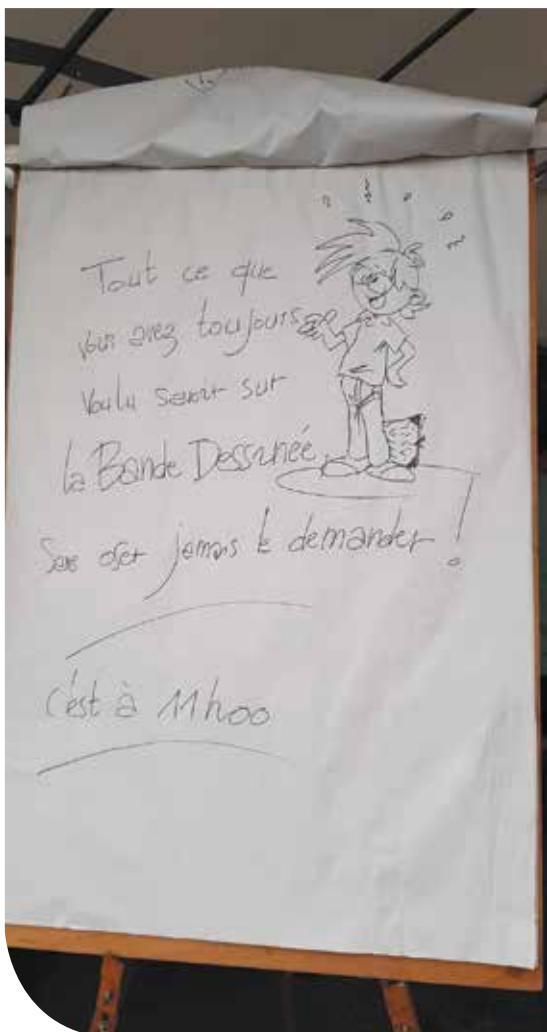 Tout ce que
vous avez toujours
Voulu savoir sur
la Bande Dessinée
Sans oser jamais le demander !
c'est à 11h00